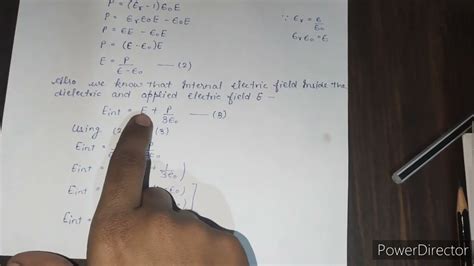 P = (εr-1) ε0E
P = εrε0E - ε0E
P = εE - ε0E
P = (ε-ε0)E
E = P/ε-ε0 —(2)
∵ εr = ε/ε0
εrε0 = ε
Also we know that internal electric field inside the
dielectric and applied electric field E -
Eint = E + P/3ε0 —(3)
Using (3)
Eint = P
Eint = + 1/3ε0)
Eint = ε0)
Eint =
PowerDirector